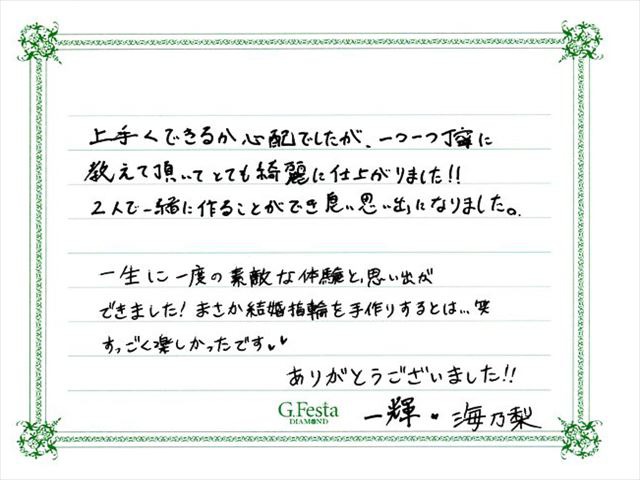 上手くできるか心配でしたが、一つ一つ丁寧に
教えて頂いてとても綺麗に仕上がりました!!
2人で一緒に作ることができ良い思い出になりました。
一生に一度の素敵な体験と、思い出が
できました!まさか結婚指輪を手作りするとは...笑
すっごく楽しかったです♥♥
ありがとうございました!!
G.Festa
DIAMOND
一輝・海乃梨